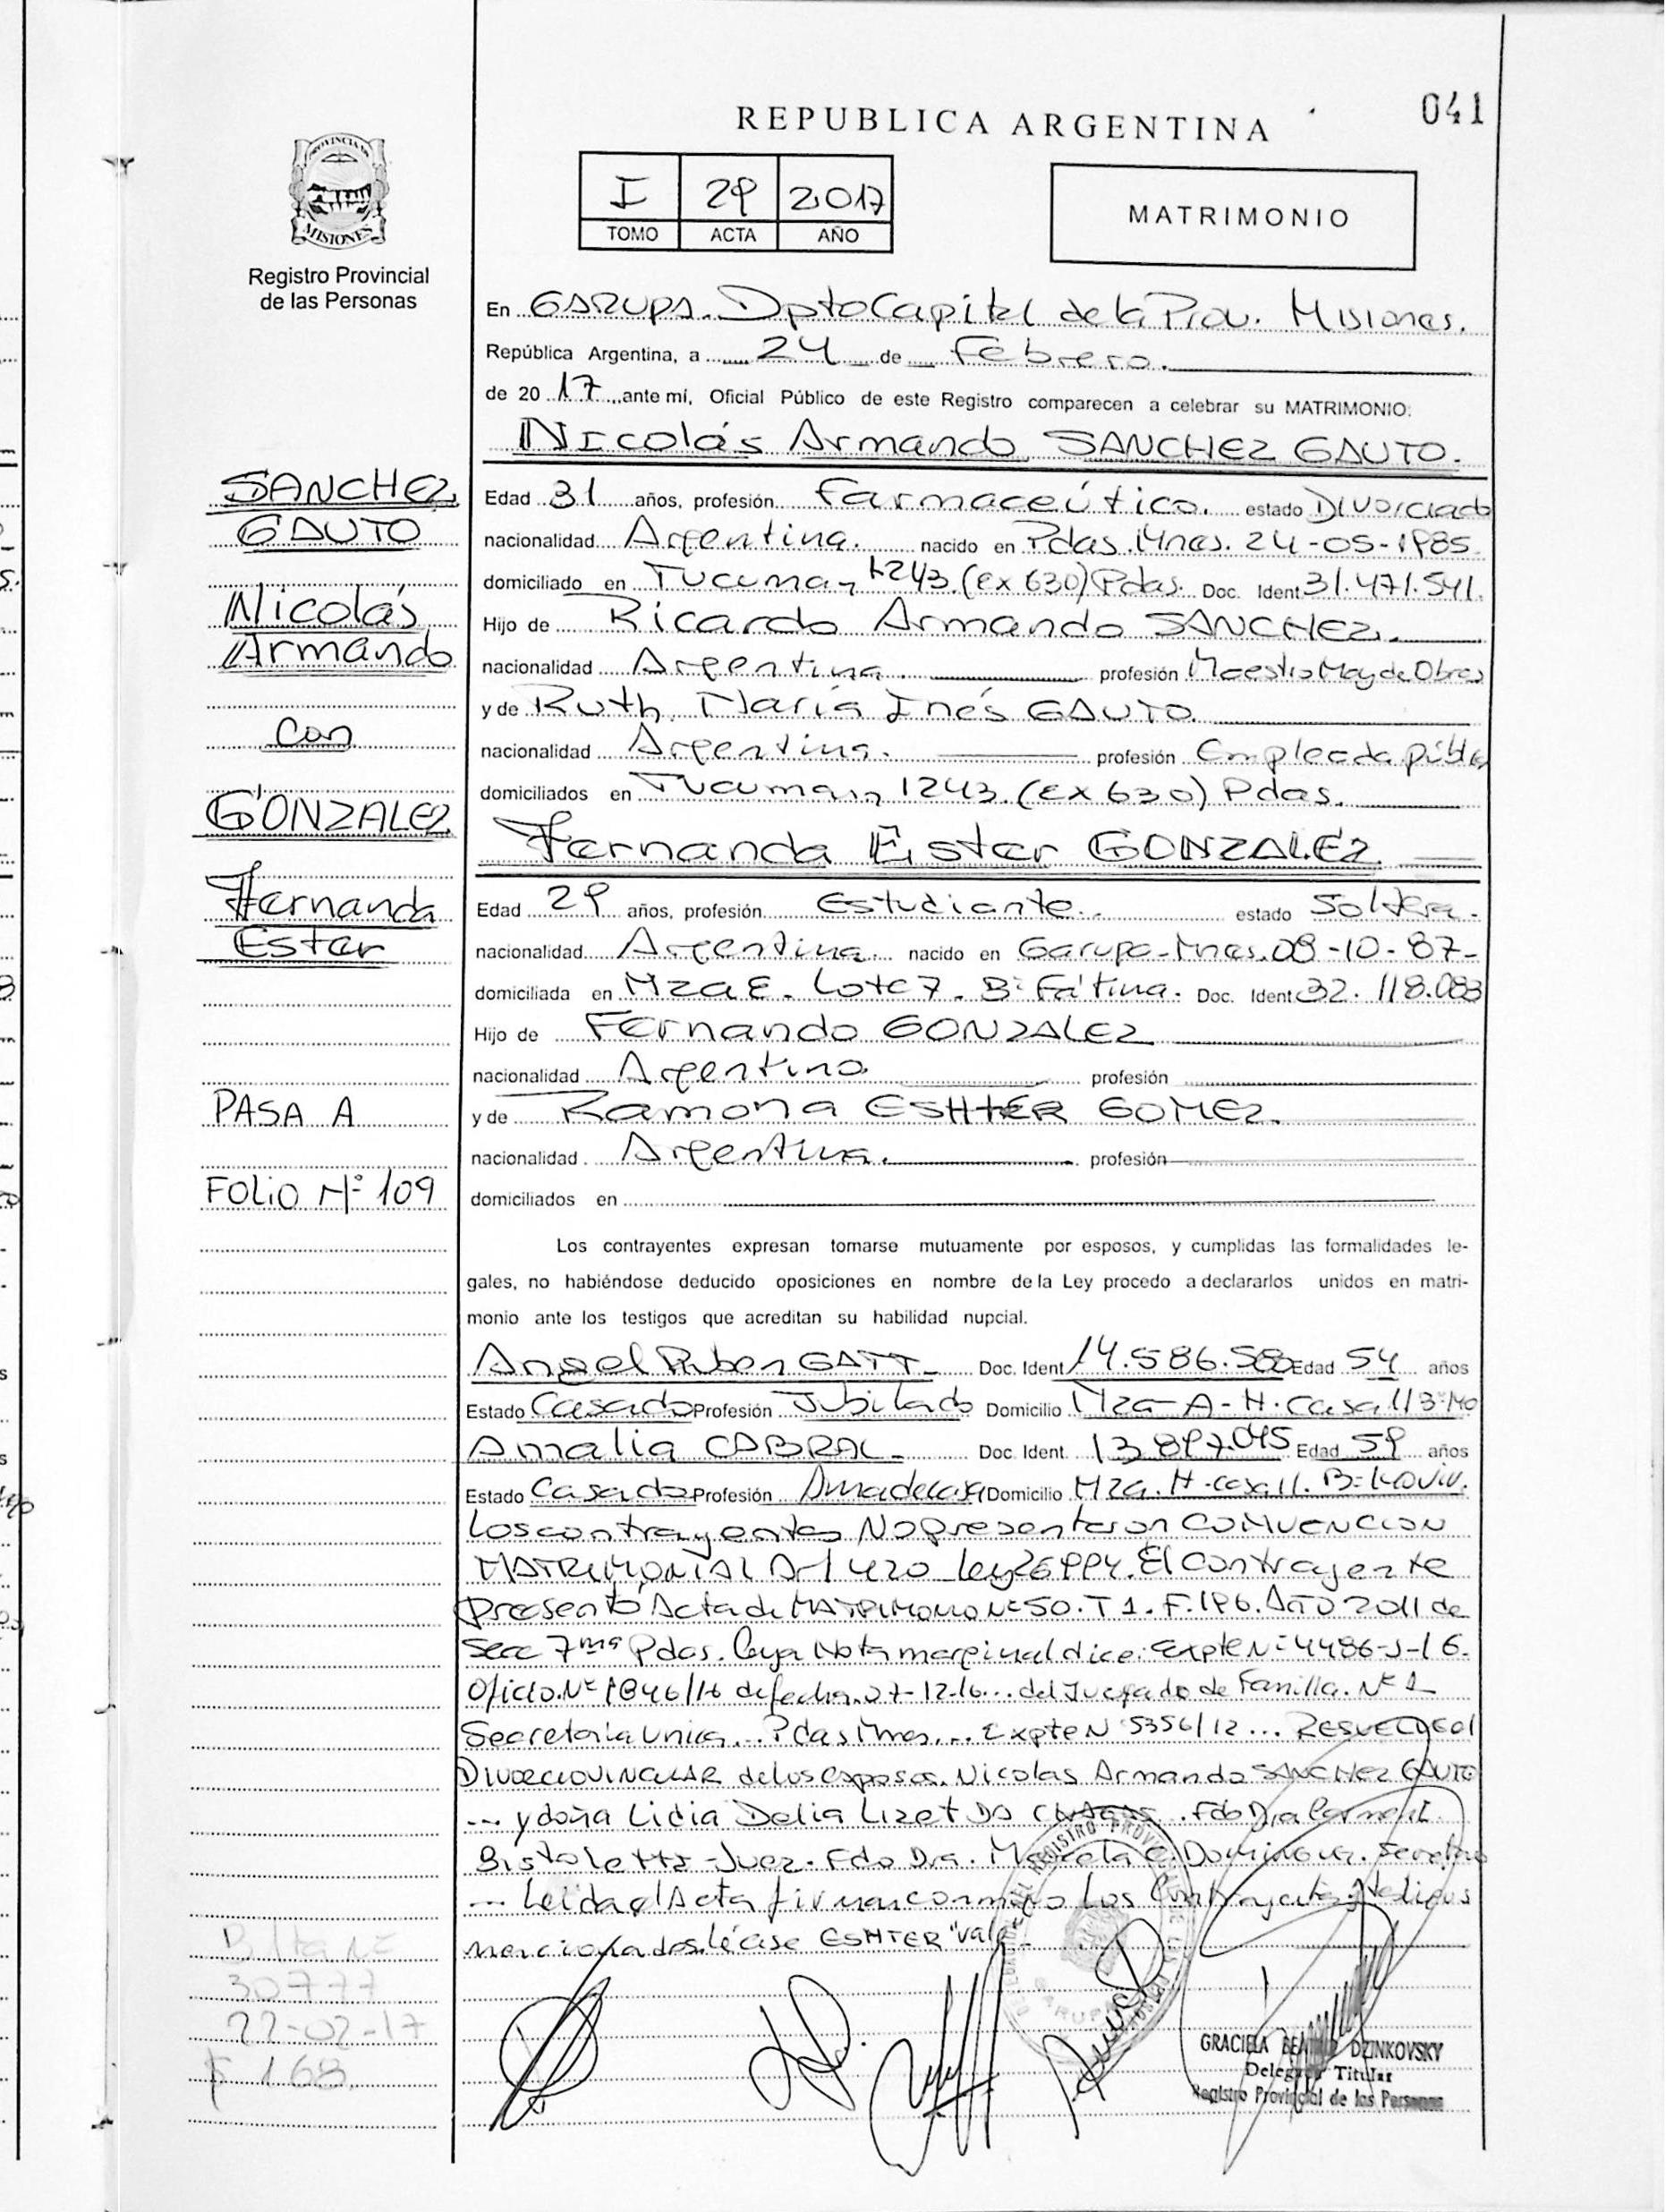 041
REPUBLICA ARGENTINA
PROVINCIA DE
MISIONES
Registro Provincial
de las Personas
I 29 2017
TOMO ACTA AÑO
MATRIMONIO
En GARUPA. Dpto Capital de la Prov. Misiones.
República Argentina, a 24 de Febrero.
de 2017, ante mí, Oficial Público de este Registro comparecen a celebrar su MATRIMONIO:
Nicolás Armando SANCHEZ GAUTO.
Edad 31 años, profesión Farmaceútico. estado Divorciado
nacionalidad Argentina. nacido en Pdas. Mnes. 24-05-1985.
domiciliado en Tucuman 1243. (ex 630) Pdas. Doc. Ident 31.471.541.
Hijo de Ricardo Armando SANCHEZ.
nacionalidad Argentina. profesión Maestro May de Obras
y de Ruth María Inés GAUTO.
nacionalidad Argentina. profesión Empleada públic
domiciliados en Tucuman 1243. (ex 630) Pdas.
Fernanda Ester GONZALEZ.
Edad 29 años, profesión Estudiante. estado Soltera.
nacionalidad Argentina. nacido en Garupa-Mnes. 08-10-87-
domiciliada en Mza E. Lote 7. Bº Fátima. Doc. Ident 32.118.083
Hijo de Fernando GONZALEZ
nacionalidad Argentino profesión
y de Ramona ESHTER GOMEZ.
nacionalidad Argentina. profesión
domiciliados en
Los contrayentes expresan tomarse mutuamente por esposos, y cumplidas las formalidades le-
gales, no habiéndose deducido oposiciones en nombre de la Ley procedo a declararlos unidos en matri-
monio ante los testigos que acreditan su habilidad nupcial.
Angel Ruben GATT Doc. Ident 14.586.580 Edad 54 años
Estado Casado Profesión Jubilado Domicilio Mza-A-H. Casa 113
Amalia CABRAL Doc. Ident. 13.897.045 Edad 59 años
Estado Casada Profesión Ama de casa Domicilio Mza. H-casa 11.
Los contrayentes No presentaron CONVENCION
MATRIMONIAL Art 420 Ley 26994. El contrayente
presentó Acta de MATRIMONIO Nº 50. T 1. F. 196. AÑO 2011 de
Secc 7ma Pdas. Cuya Nota marginal dice: Expte Nº 4486-S-16.
Oficio Nº 1846/16 de fecha 07-12-16... del Juzgado de Familia. Nº 1
Secretaria Unica... Pdas Mnes... Expte Nº 5356/12 ...
DIVORCIO VINCULAR de los esposos. Nicolas Armando SANCHEZ GAUTO
... y doña Lidia Delia Lizet DO CHAGAS. Fdo Dra
Bistoletti-Juez. Fdo Dra. Marcela
... Leida el Acta firman conmigo Los Contrayentes y testigos
mencionados. léase ESHTER "Vale"
GRACIELA BEATRIZ DZINKOVSKY
Delegada Titular
Registro Provincial de las Personas
SANCHEZ
GAUTO
Nicolás
Armando
con
GONZALEZ
Fernanda
Ester
PASA A
FOLIO Nº 109
Boleta Nº
30777
22-02-17
$ 168.